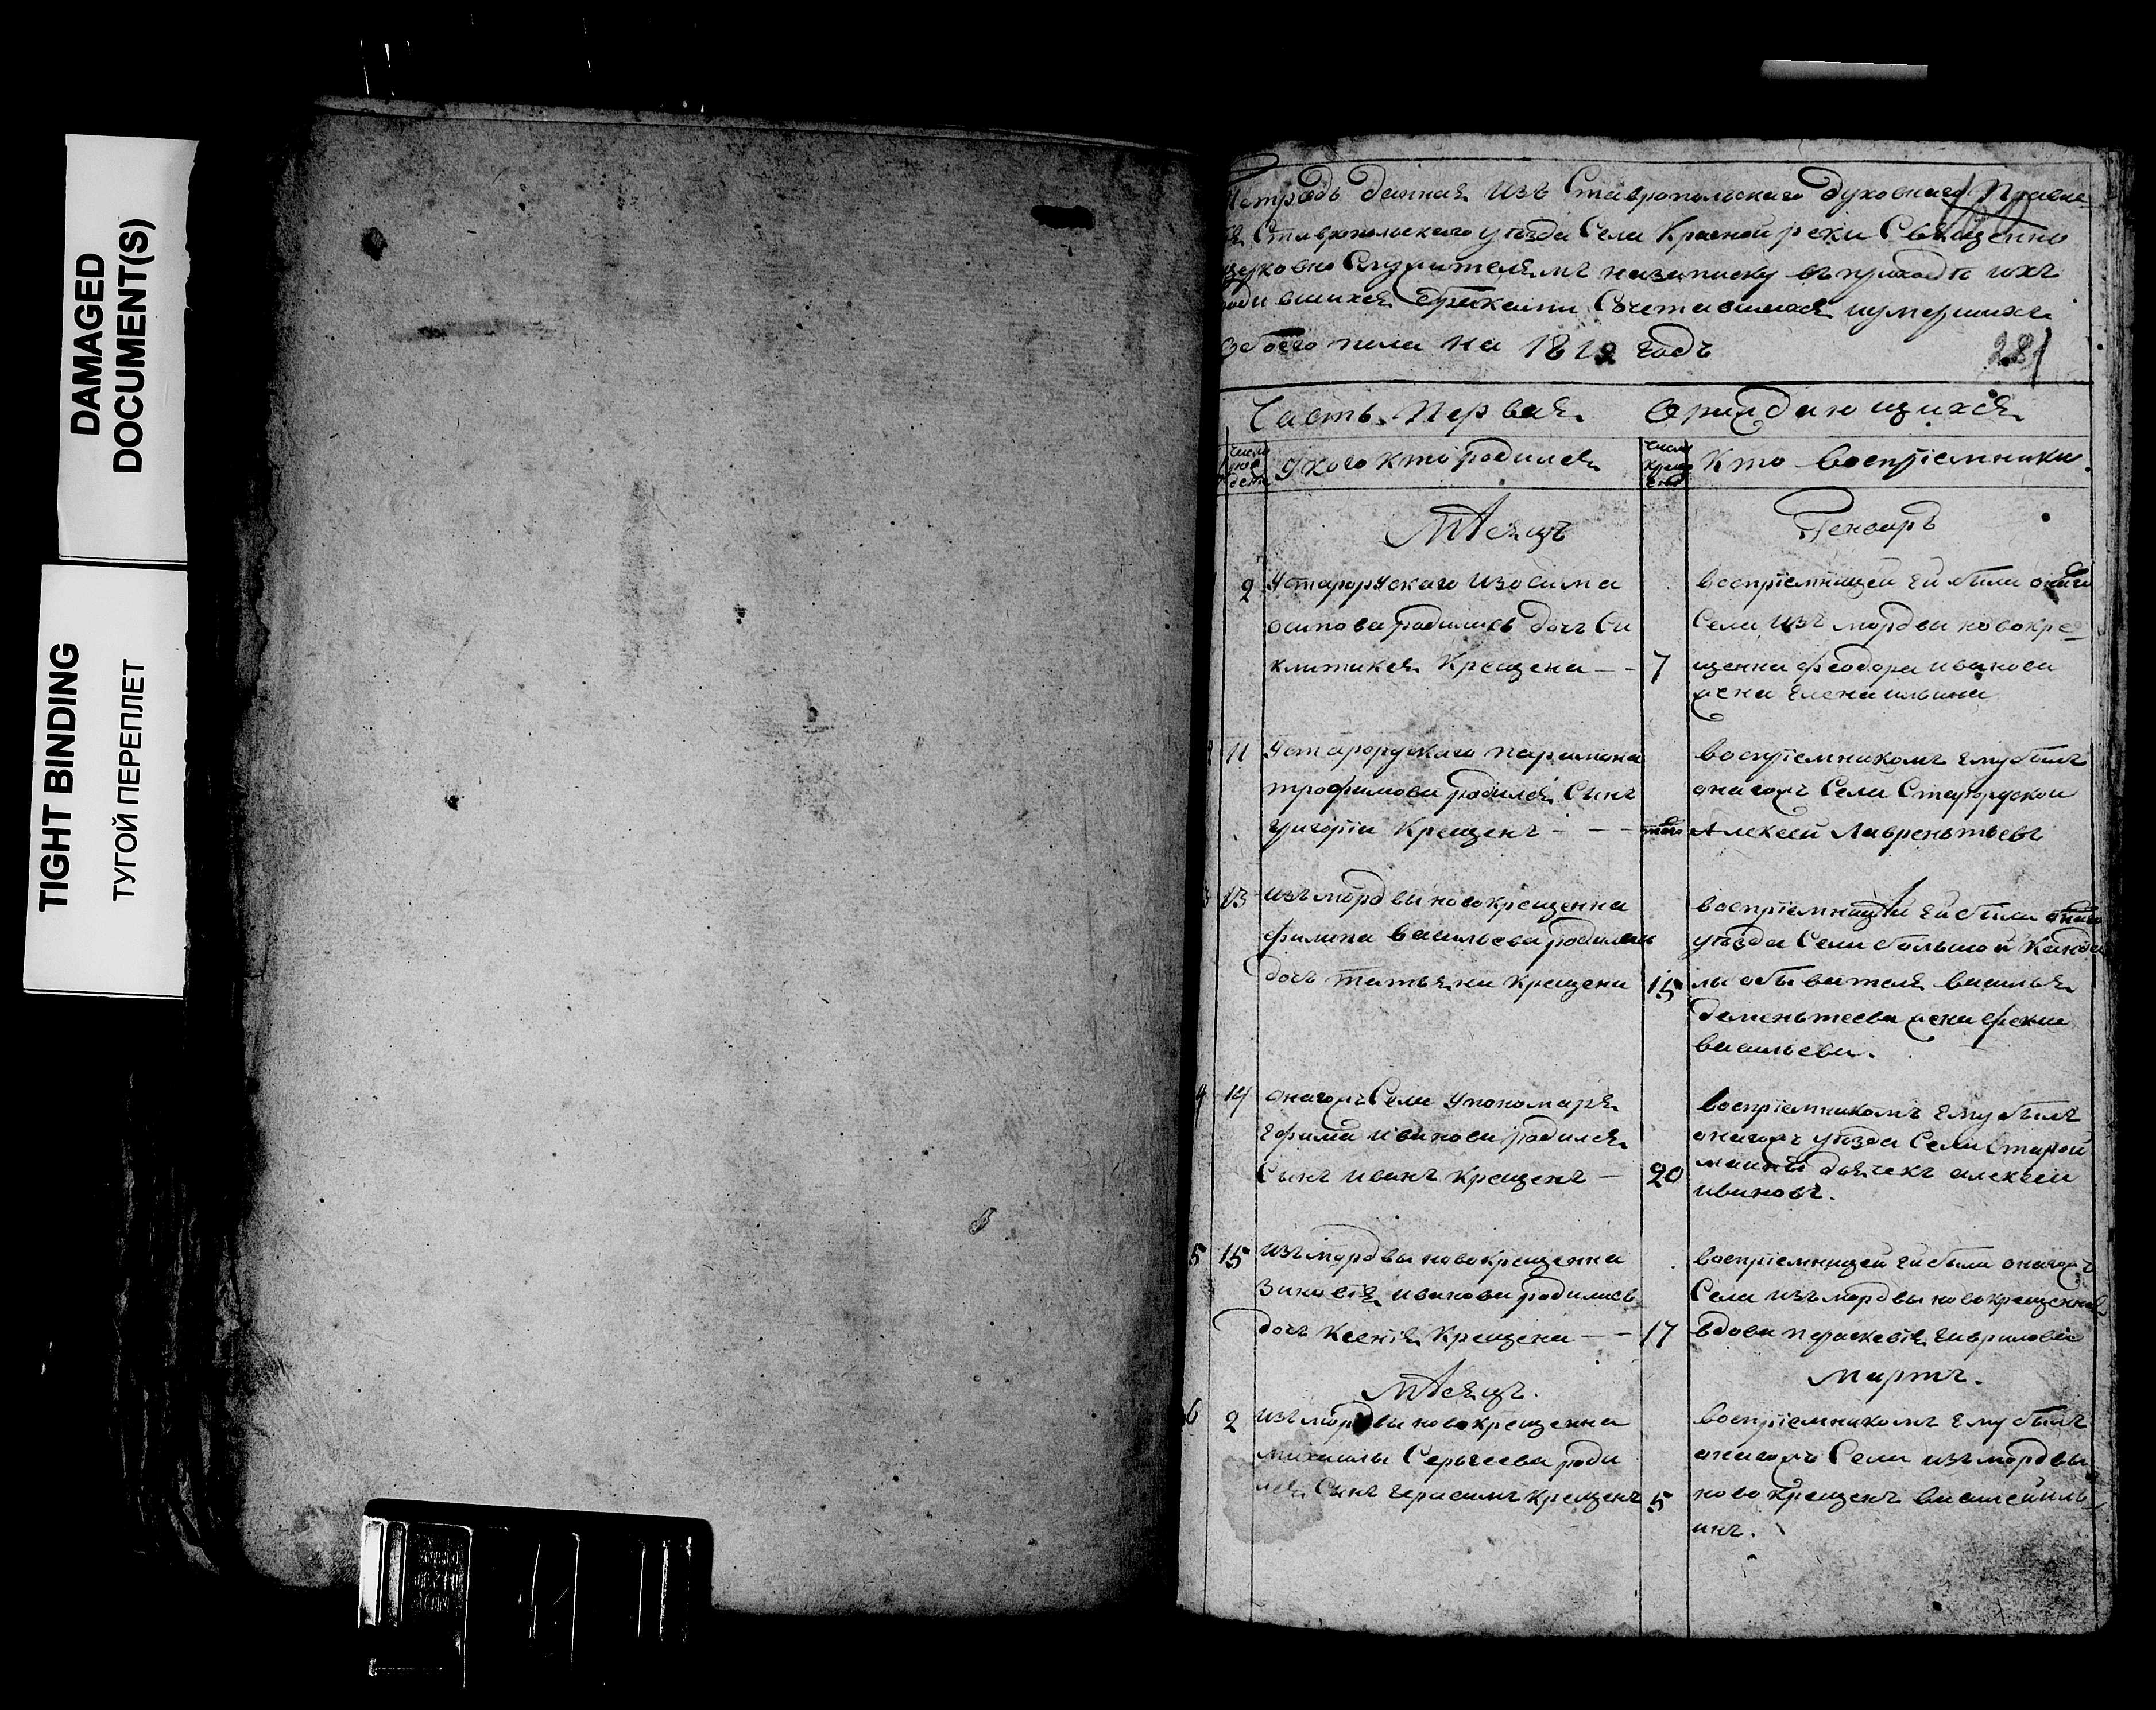 DAMAGED
DOCUMENT(S)
TIGHT BINDING
ТУГОЙ ПЕРЕПЛЕТ
тетрадь данная изъ Ставропольскаго духовнаго Правле
Ставропольскаго уѣзда Села Красной реки Священно
церковно Служителямъ на записку въ приходѣ ихъ
родившихся бракомъ Сочетавшихся и умершихъ
обоего пола на 18 годъ
281
Часть Первая О раждающихся
число рож дения
У кого кто родился
число креще ния
Кто воспрiемники
Мѣсяцъ Генварь
2 У старорускаго Изосима
осипова родилась дочь Си
клитикея Крещена — - 7
воспрiемницей ей была онаго
Села изъ мордвы новокре
щенна феодора иванова
жена Елена ильина
11 У старорускаго парамона
трофимова родился Сынъ
григорiи Крещенъ - - -
воспрiемникомъ ему былъ
онагожъ Села Старорускои
Алексеи Лаврентьевъ
13 изъ мордвы новокрещенна
филипа васильева родилась
дочь татьяна крещена 15
воспрiемницей ей была онаго
уѣзда Села большой Канда
лы обывателя василья
дементьева жена
васильева.
4 14 онагожъ Села у пономаря
Ефима иванова родился
Сынъ иванъ крещенъ — 20
воспрiемникомъ ему былъ
онагожъ уѣзда Села Старой
маины дьячекъ алексеи
ивановъ.
5 15 изъ мордвы новокрещенна
Зиновiя иванова родилась
дочь Ксенiя Крещена — - 17
воспрiемницей ей была онагожъ
Села изъ мордвы новокрещенна
вдова параскевiя гаврилова
Мѣсяцъ. Мартъ.
6 2 изъ мордвы новокрещенна
михаилы Сергеева роди
лся Сынъ герасимъ крещенъ 5
воспрiемникомъ ему былъ
онагожъ Села изъ мордвы
новокрещенъ василей иль
инъ.